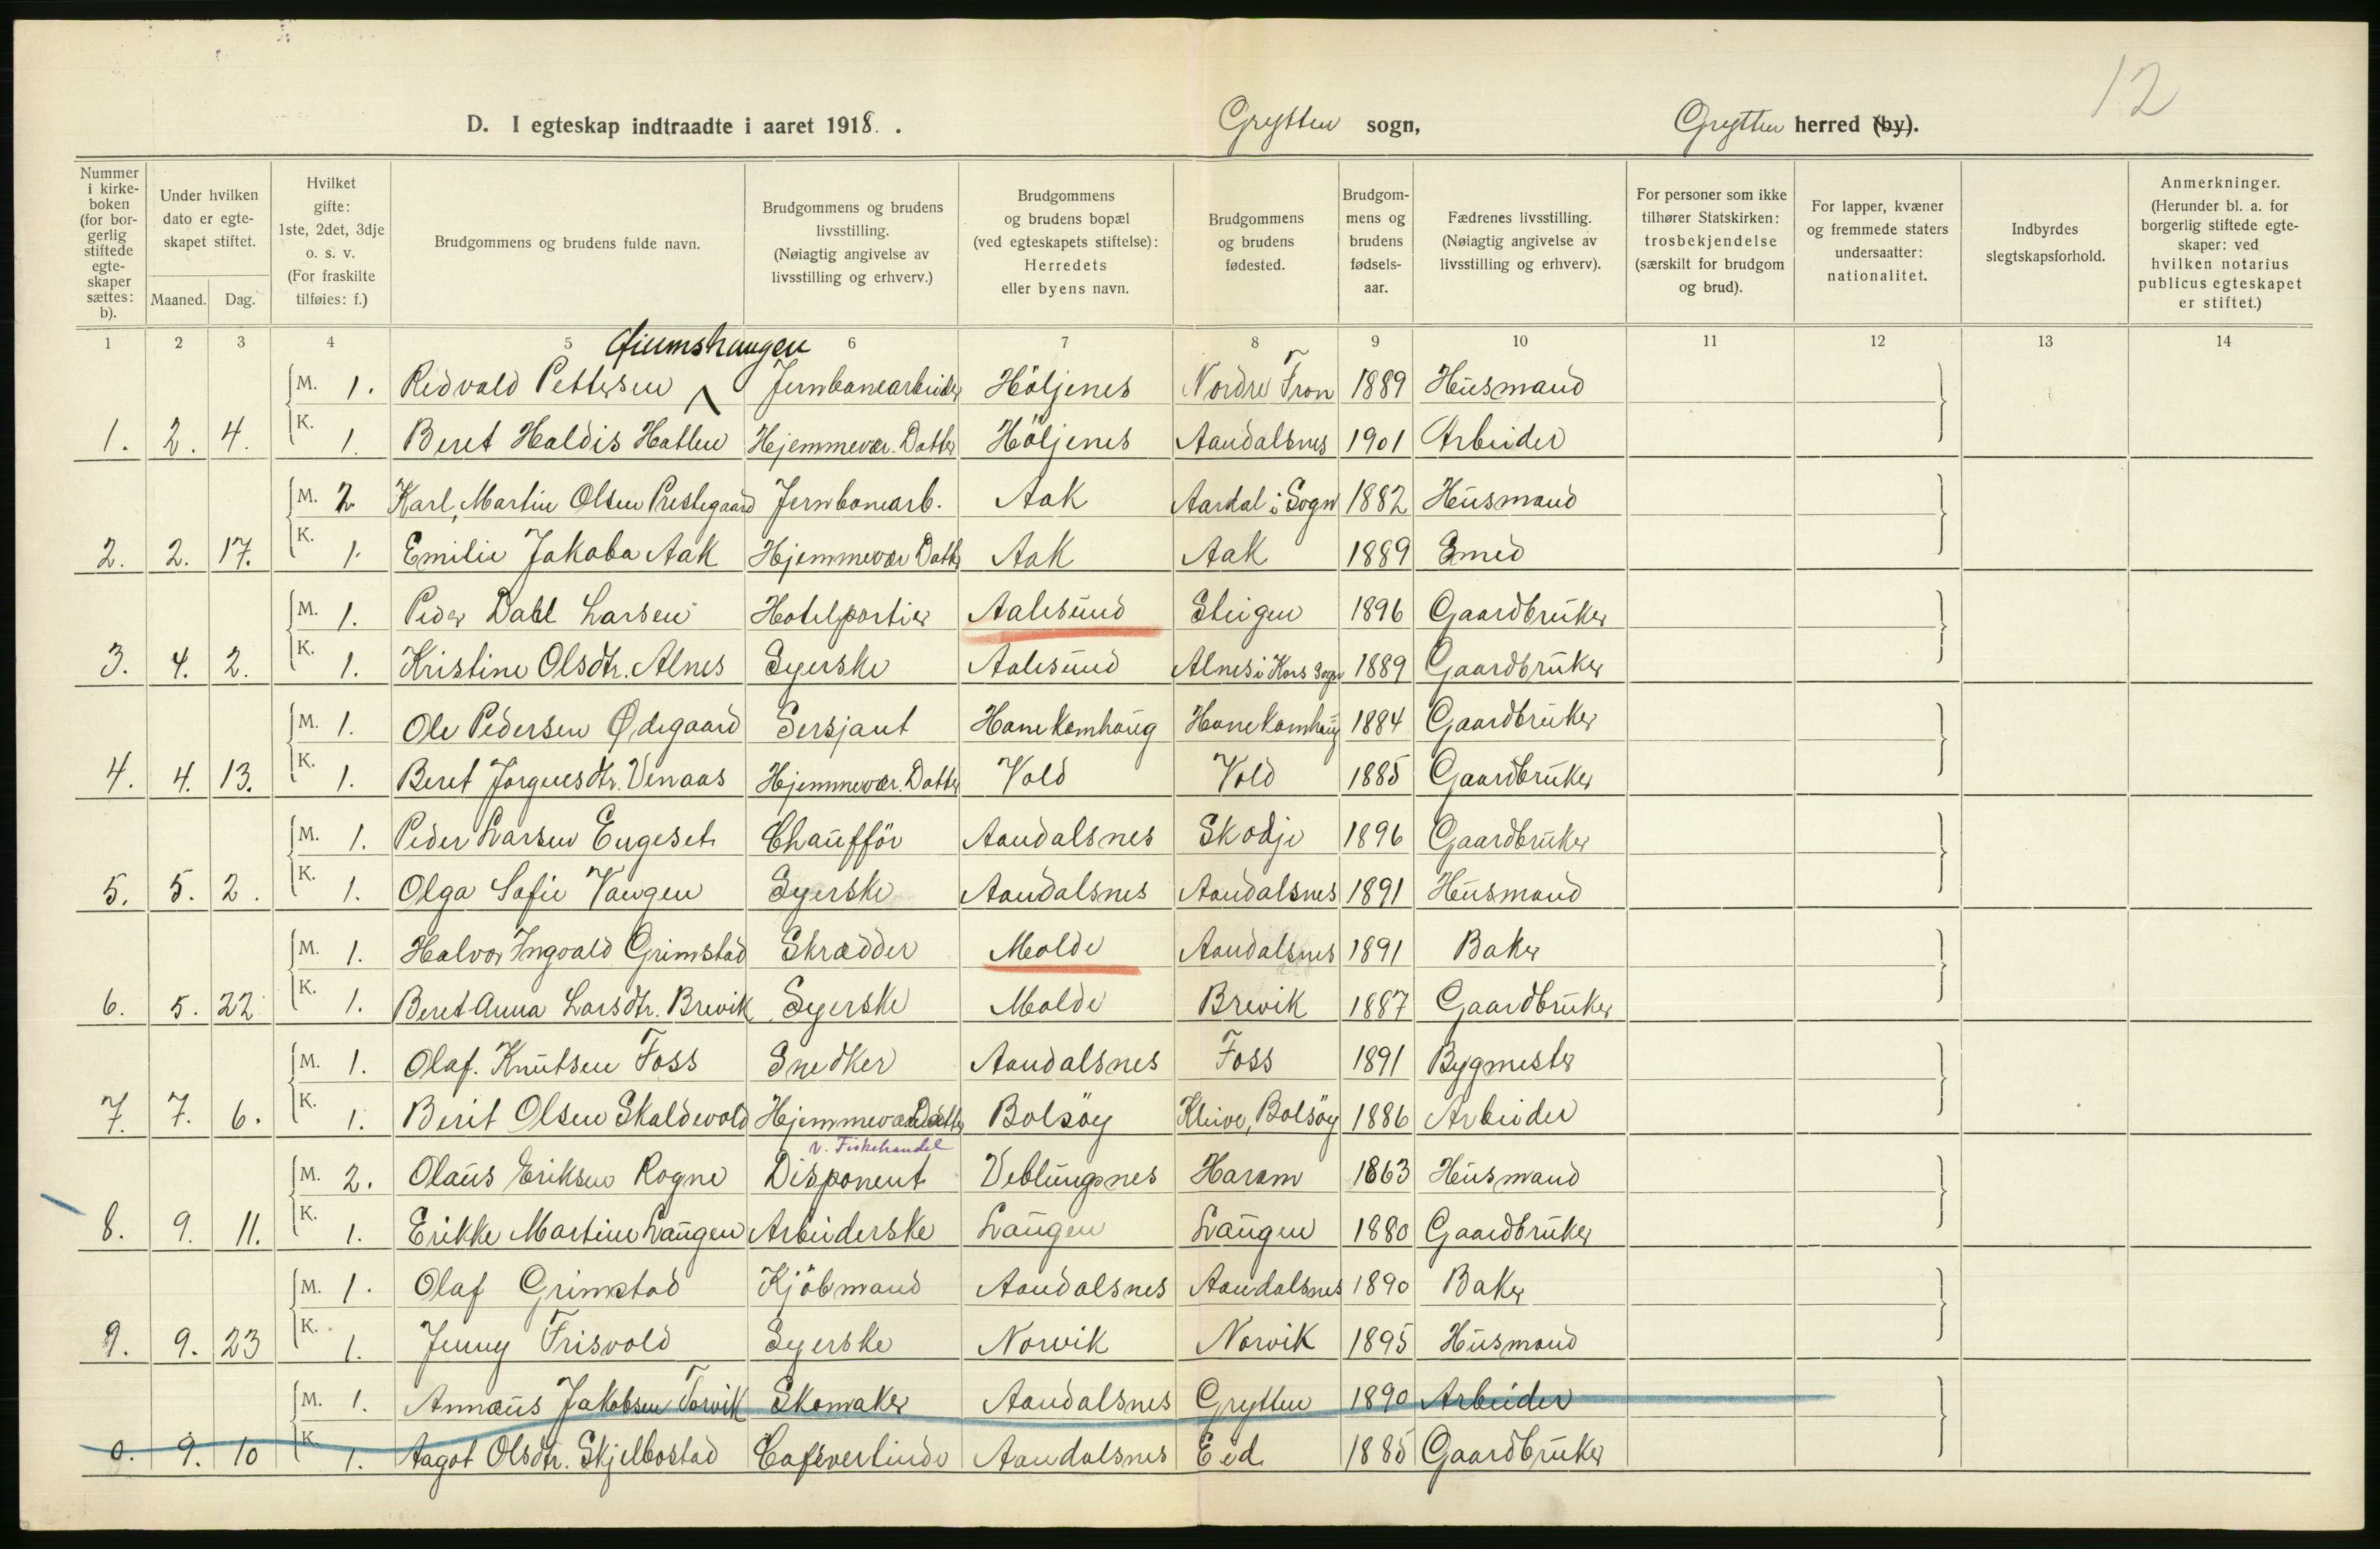 12
D. I egteskap indtraadte i aaret 1918. . Grytten sogn, Grytten herred (by).
Nummer i kirkeboken (for borgerlig stiftede egteskaper sættes: b).
Under hvilken dato er egteskapet stiftet.
Maaned. Dag.
Hvilket gifte: 1ste, 2det, 3dje o. s. v. (For fraskilte tilføies: f.)
Brudgommens og brudens fulde navn.
Brudgommens og brudens livsstilling. (Nøiagtig angivelse av livsstilling og erhverv.)
Brudgommens og brudens bopæl (ved egteskapets stiftelse): Herredets eller byens navn.
Brudgommens og brudens fødested.
Brudgommens og brudens fødselsaar.
Fædrenes livsstilling. (Nøiagtig angivelse av livsstilling og erhverv).
For personer som ikke tilhører Statskirken: trosbekjendelse (særskilt for brudgom og brud).
For lapper, kvæner og fremmede staters undersaatter: nationalitet.
Indbyrdes slegtskapsforhold.
Anmerkninger. (Herunder bl. a. for borgerlig stiftede egteskaper: ved hvilken notarius publicus egteskapet er stiftet.)
1 2 3 4 5 6 7 8 9 10 11 12 13 14
M. 1. Redvald Pettersen Jernbanearbeider Höljenes Nordre Fron 1889 Husmand
1. 2. 4. K. 1. Beret Haldis Hatlen Hjemmevær. Datter Höljenes Aandalsnes 1901 Arbeider
M. 2 Karl Martin Olsen Prestegaard Jernbanearb. Aak Aardal i Sogn 1882 Husmand
2. 2. 17. K. 1. Emilie Jakoba Aak Hjemmevær Datter Aak Aak 1889 Smed
M. 1. Peder Dahl Larsen Hotelportier Aalesund Steigen 1896 Gaardbruker
3. 4. 2. K. 1. Kristine Olsdtr. Alnes Syerske Aalesund Alnes i Kors Sogn 1889 Gaardbruker
M. 1. Ole Pedersen Ødegaard Sersjant Hanekamhaug Hanekamhaug 1884 Gaardbruker
4. 4. 13. K. 1. Beret Jørgensdtr. Venaas Hjemmevær. Datter Vold Vold 1885 Gaardbruker
M. 1. Peder Larsen Engeset Chaufför Aandalsnes Skodje 1896 Gaardbruker
5. 5. 2. K. 1. Olga Sofie Vangen Syerske Aandalsnes Aandalsnes 1891 Husmand
M. 1. Halvor Ingvald Grimstad Skrædder Molde Aandalsnes 1891 Baker
6. 5. 22 K. 1. Beret Anna Larsdtr. Brevik Syerske Molde Brevik 1887 Gaardbruker
M. 1. Olaf. Knutsen Foss Snedker Aandalsnes Foss 1891 Bygmester
7. 7. 6. K. 1. Berit Olsen Skaldevold Hjemmevær Datter Bolsöy Kleive, Bolsöy 1886 Arbeider
v. Fiskehandel
M. 2. Olaus Eriksen Rogne Disponent Veblungsnes Haram 1863 Husmand
8. 9. 11. K. 1. Erikke Martine Langen Arbeiderske Langen Langen 1880 Gaardbruker
M. 1. Olaf Grimstad Kjöbmand Aandalsnes Aandalsnes 1890 Baker
9. 9. 23 K. 1. Jenny Frisvold Syerske Norvik Norvik 1895 Husmand
M. 1. Annæus Jakobsen Torvik Skomaker Aandalsnes Grytten 1890 Arbeider
0. 9. 10 K. 1. Aagot Olsdtr. Skjelbostad Cafévertinde Aandalsnes Eid 1885 Gaardbruker